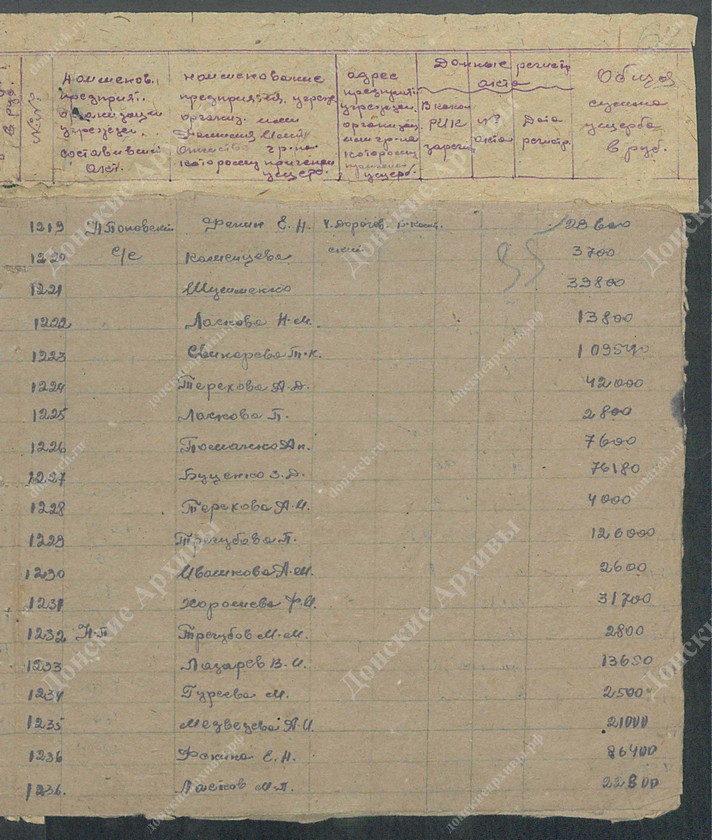 №№
Наименов. предприят. организации учрежден. составивший акт.
наименование предприятия, учрежд. организ. или Фамилия Имя Отчество гр-на которому причинен ущерб.
адрес предприят. учрежден. организац. или гр-на которому причинен ущерб.
Данные регистр. акта
В каком РИК зарегис.
№ акта
Дата регистр.
Общая сумма ущерба в руб.
1219 Н Поповский Фекин Е. Н. х. Дорогов. 23600
1220 с/с Каменцева ский 3700
1221 Шушменко 39800
1222 Ласкова Н. М. 13800
1223 Свинарева Т. К. 109540
1224 Терехова А. Д. 42000
1225 Ласкова П. 2800
1226 7600
1227 Буценко З. Д. 76180
1228 Терехова А. И. 4000
1229 Трегубова П. 126000
1230 Ивашкова А. М. 2600
1231 Хорошева Ф. И. 31700
1232 Н-П Трегубов М. М. 2800
1233 Лазарев В. И. 13650
1234 Гуреева М. 2500
1235 Медведева А. И. 21000
1236 Фекина Е. Н. 86400
1236. Ласков М. П. 22800
Донские Архивы
donarch.ru
донскиеархивы.рф